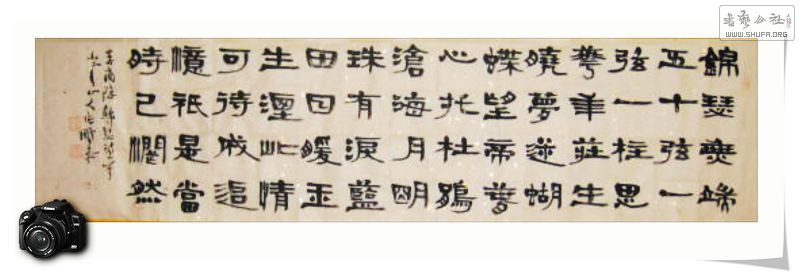 錦瑟無端
五十弦一
弦一柱思
華年莊生
曉夢迷蝴
蝶望帝春
心托杜鵑
滄海月明
珠有淚藍
田日暖玉
生湮此情
可待成追
憶祇是當
時已惘然
李商隱錦瑟
書法公社
WWW.SHUFA.ORG